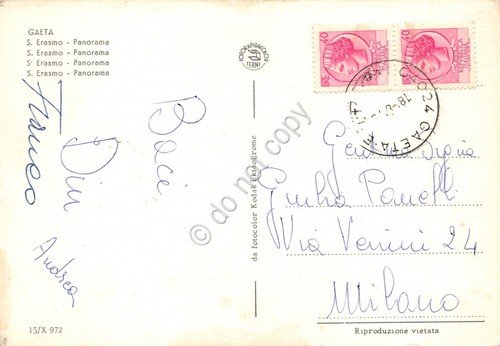 GAETA
S. Erasmo - Panorama
S. Erasmo - Panorama
S. Erasmo - Panorama
S. Erasmo - Panorama
Franco
Baci
Andrea
15/X 972
da fotocolor Kodak Ektachrome
FOTORAPIDACOLOR
TERNI
40
40
024 GAETA
18-8
© do not copy
Giulia Panelli
Via 24
Milano
Riproduzione vietata